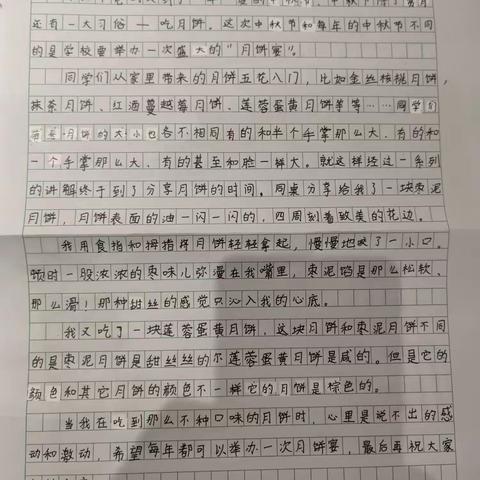 还有一大习俗一吃月饼。这次中秋节和每年的中秋节不同
的是学校要举办一次盛大的"月饼宴"。
同学们从家里带来的月饼五花八门，比如金丝核桃月饼、
抹茶月饼、红酒蔓越莓月饼、莲蓉蛋黄月饼等等……同学们
每块月饼的大小也各不相同有的和半个手掌那么大、有的和
一个手掌那么大、有的甚至和脸一样大。就这样经过一系列
的讲解终于到了分享月饼的时间。同桌分享给我了一块枣泥
月饼，月饼表面的油一闪一闪的，四周刻着致美的花边。
我用食指和拇指将月饼轻轻拿起，慢慢地咬了一小口。
顿时一股浓浓的枣味儿弥漫在我嘴里，枣泥馅是那么松软、
那么滑！那种甜丝的感觉只沁入我的心底。
我又吃了一块莲蓉蛋黄月饼，这块月饼和枣泥月饼不同
的是枣泥月饼是甜丝丝的尔莲蓉蛋黄月饼是咸的。但是它的
颜色和其它月饼的颜色不一样它的月饼是棕色的。
当我在吃到那么不种口味的月饼时，心里是说不出的感
动和激动，希望每年都可以举办一次月饼宴，最后再祝大家